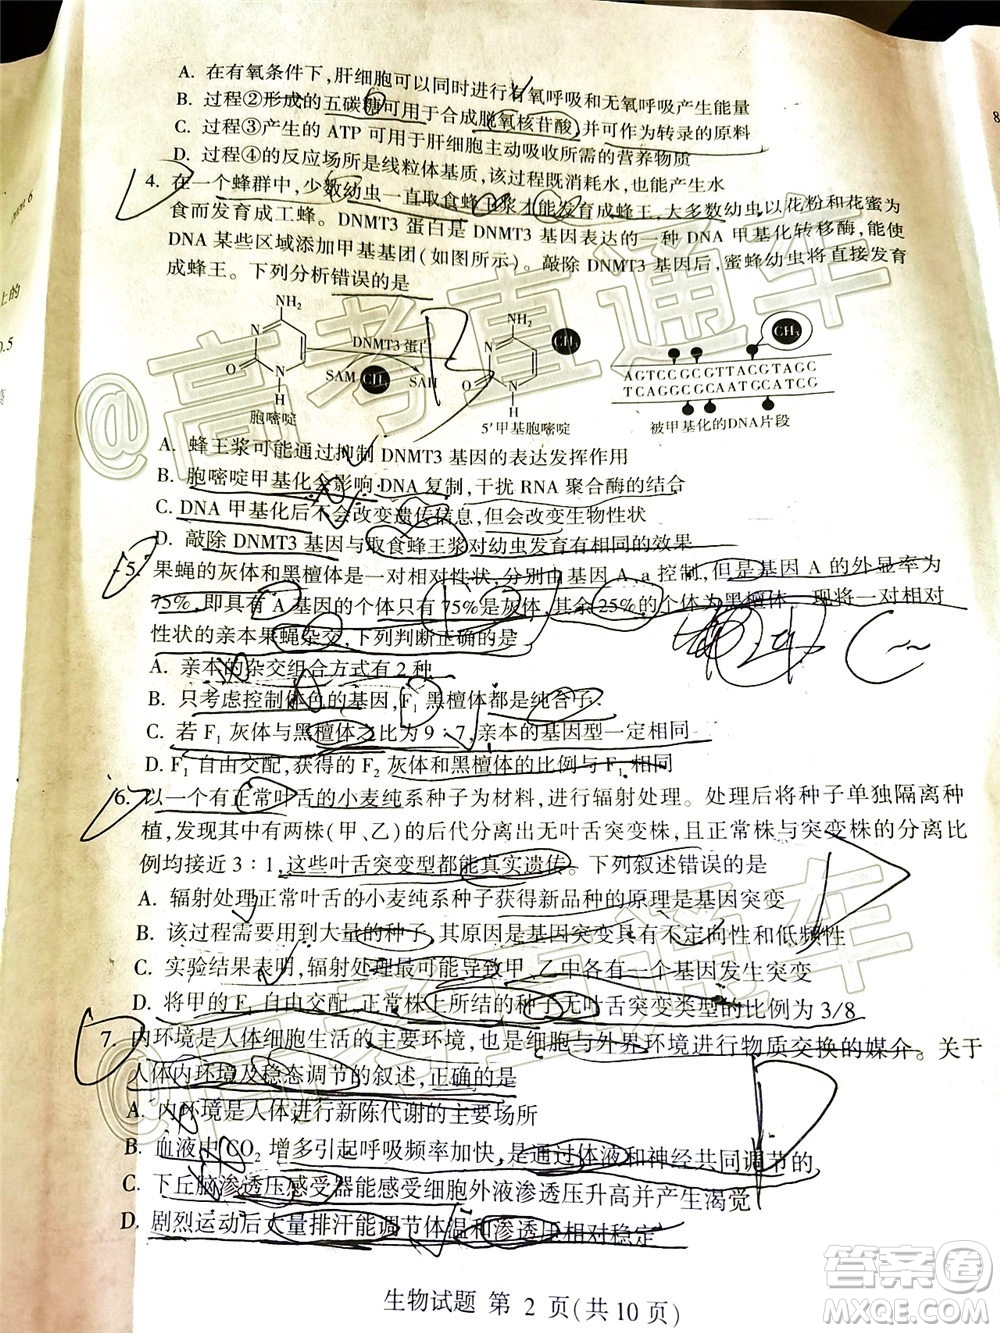 A. 在有氧条件下,肝细胞可以同时进行有氧呼吸和无氧呼吸产生能量
B. 过程②形成的五碳糖可用于合成脱氧核苷酸,并可作为转录的原料
C. 过程③产生的 ATP 可用于肝细胞主动吸收所需的营养物质
D. 过程④的反应场所是线粒体基质,该过程既消耗水,也能产生水
4. 在一个蜂群中,少数幼虫一直取食蜂王浆才能发育成蜂王,大多数幼虫以花粉和花蜜为
食而发育成工蜂。DNMT3 蛋白是 DNMT3 基因表达的一种 DNA 甲基化转移酶,能使
DNA 某些区域添加甲基基团(如图所示)。敲除 DNMT3 基因后,蜜蜂幼虫将直接发育
成蜂王。下列分析错误的是
NH₂
N
O
N
H
胞嘧啶
DNMT3 蛋白
SAM
CH₃
SAH
NH₂
CH₃
N
O
N
H
5'甲基胞嘧啶
CH₃
AGTCCGCGTTACGTAGC
TCAGGCGCAATGCATCG
被甲基化的DNA片段
A. 蜂王浆可能通过抑制 DNMT3 基因的表达发挥作用
B. 胞嘧啶甲基化会影响 DNA 复制,干扰 RNA 聚合酶的结合
C. DNA 甲基化后不会改变遗传信息,但会改变生物性状
D. 敲除 DNMT3 基因与取食蜂王浆对幼虫发育有相同的效果
5. 果蝇的灰体和黑檀体是一对相对性状,分别由基因 A、a 控制,但是基因 A 的外显率为
75%,即具有 A 基因的个体只有 75%是灰体,其余 25%的个体为黑檀体。现将一对相对
性状的亲本果蝇杂交,下列判断正确的是
A. 亲本的杂交组合方式有 2 种
B. 只考虑控制体色的基因,F₁ 黑檀体都是纯合子
C. 若 F₁ 灰体与黑檀体之比为 9∶7,亲本的基因型一定相同
D. F₁ 自由交配,获得的 F₂ 灰体和黑檀体的比例与 F₁ 相同
6. 以一个有正常叶舌的小麦纯系种子为材料,进行辐射处理。处理后将种子单独隔离种
植,发现其中有两株(甲、乙)的后代分离出无叶舌突变株,且正常株与突变株的分离比
例均接近 3∶1,这些叶舌突变型都能真实遗传。下列叙述错误的是
A. 辐射处理正常叶舌的小麦纯系种子获得新品种的原理是基因突变
B. 该过程需要用到大量的种子,其原因是基因突变具有不定向性和低频性
C. 实验结果表明,辐射处理最可能导致甲、乙中各有一个基因发生突变
D. 将甲的 F₁ 自由交配,正常株上所结的种子无叶舌突变类型的比例为 3/8
7. 内环境是人体细胞生活的主要环境,也是细胞与外界环境进行物质交换的媒介。关于
人体内环境及稳态调节的叙述,正确的是
A. 内环境是人体进行新陈代谢的主要场所
B. 血液中 CO₂ 增多引起呼吸频率加快,是通过体液和神经共同调节的
C. 下丘脑渗透压感受器能感受细胞外液渗透压升高并产生渴觉
D. 剧烈运动后大量排汗能调节体温和渗透压相对稳定
生物试题 第 2 页(共10页)
@高考直通车
@高考直通车
答案圈
MXQE.COM